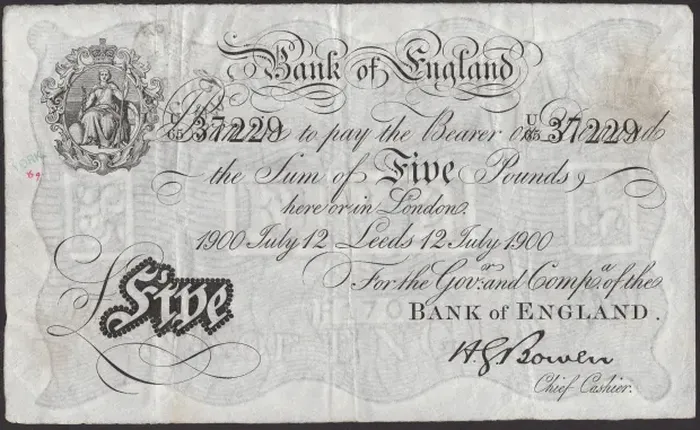 Bank of England
U/65 37229 U/65 37229
I Promise to pay the Bearer on Demand
the Sum of Five Pounds
here or in London.
1900 July 12 Leeds 12 July 1900
For the Govr. and Compa. of the
BANK of ENGLAND.
Five
H G Bowen
Chief Cashier.